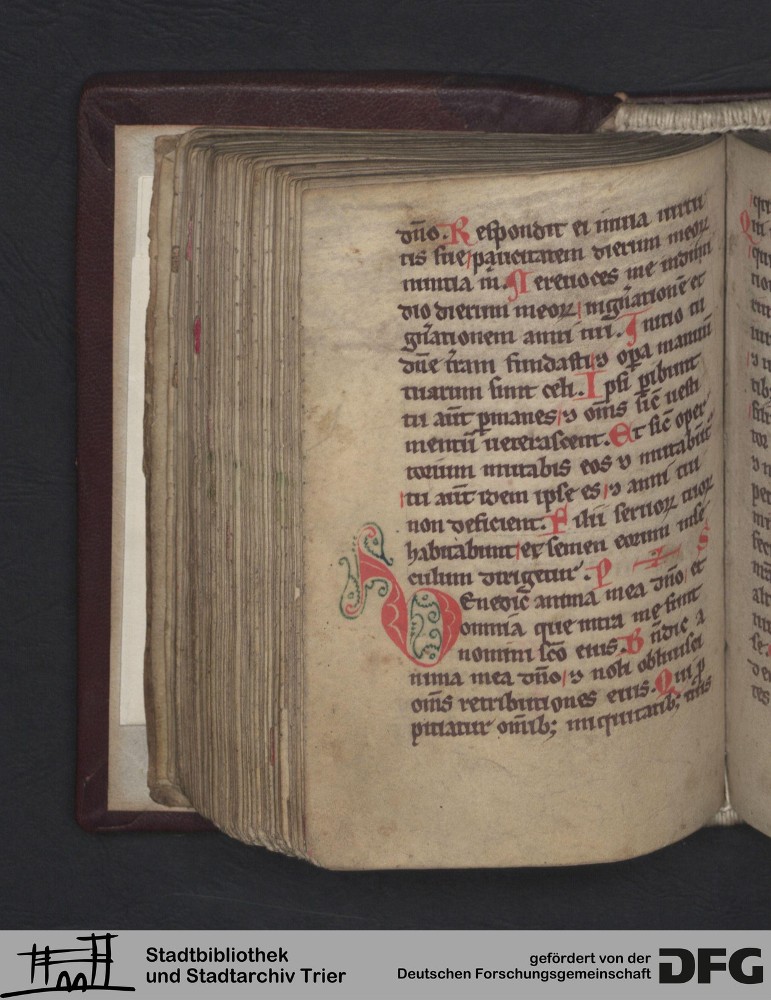 dn̄o. Respondit ei inuia uirtu
tis sue / paucitatem dierum meoꝝ
nuntia m̄. Ne reuoces me indimi
dio dierum meoꝝ / ingn̄ationē et
gn̄ationem anni tui. Initio tu
dn̄e t̄ram fundasti / ⁊ oꝑa manuū
tuarum sunt celi. Ipsi ꝑibunt
tu aūt ꝑmanes / ⁊ om̄s sic̄ uesti
mentū ueterascent. Et sic̄ oper
torium mutabis eos ⁊ mutabūt̄
/ tu aūt idem ipse es / ⁊ anni tui
non deficient. Filii seruoꝝ tuoꝝ
habitabunt / et semen eorum insc̄
culum dirigetur. P S
Benedic̄ anima mea dn̄o / et
omnia que intra me sunt
nomini sc̄o eius. Bn̄dic a
nima mea dn̄o / ⁊ noli obliuisci
om̄s retributiones eius. Qui ꝓ
pitiatur om̄ib; iniquitatib; tuis
Stadtbibliothek
und Stadtarchiv Trier
gefördert von der
Deutschen Forschungsgemeinschaft
DFG